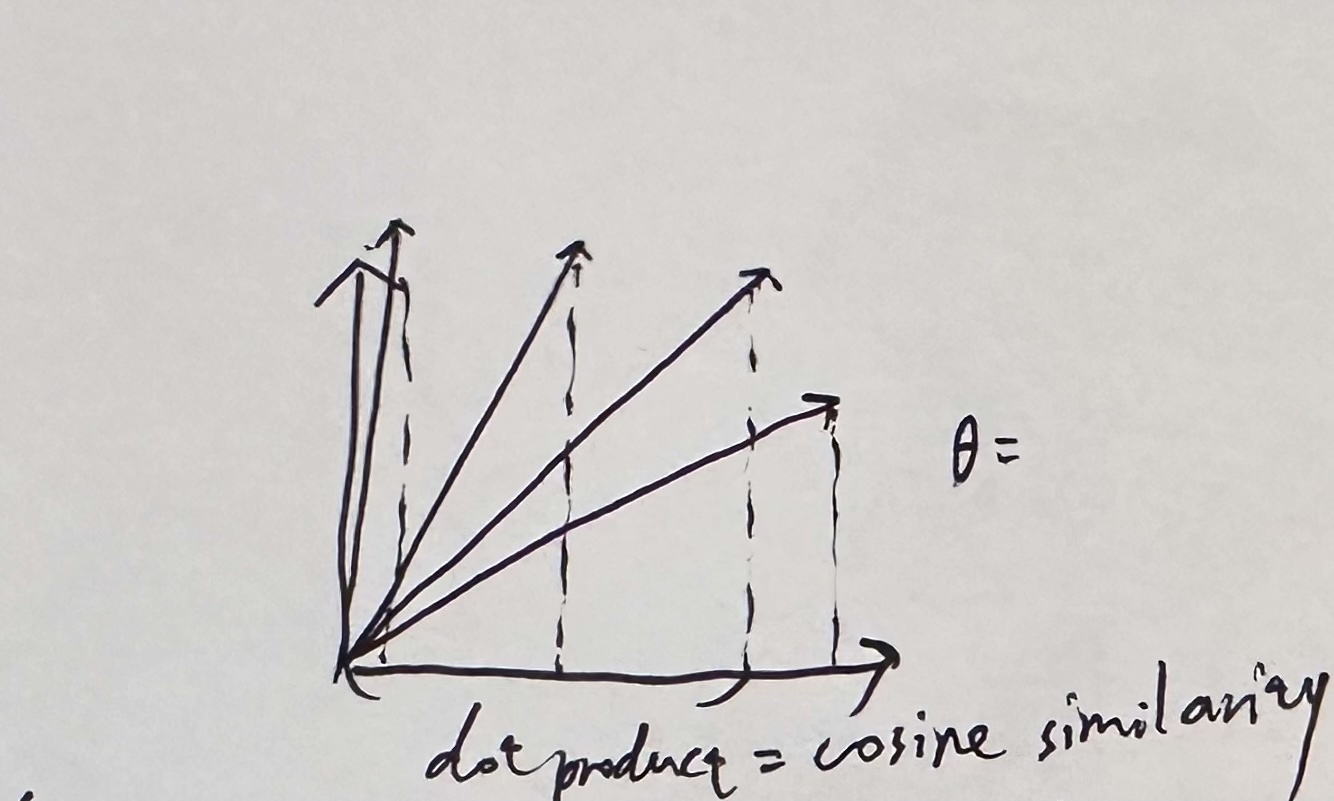 θ =
dot product = cosine similariay